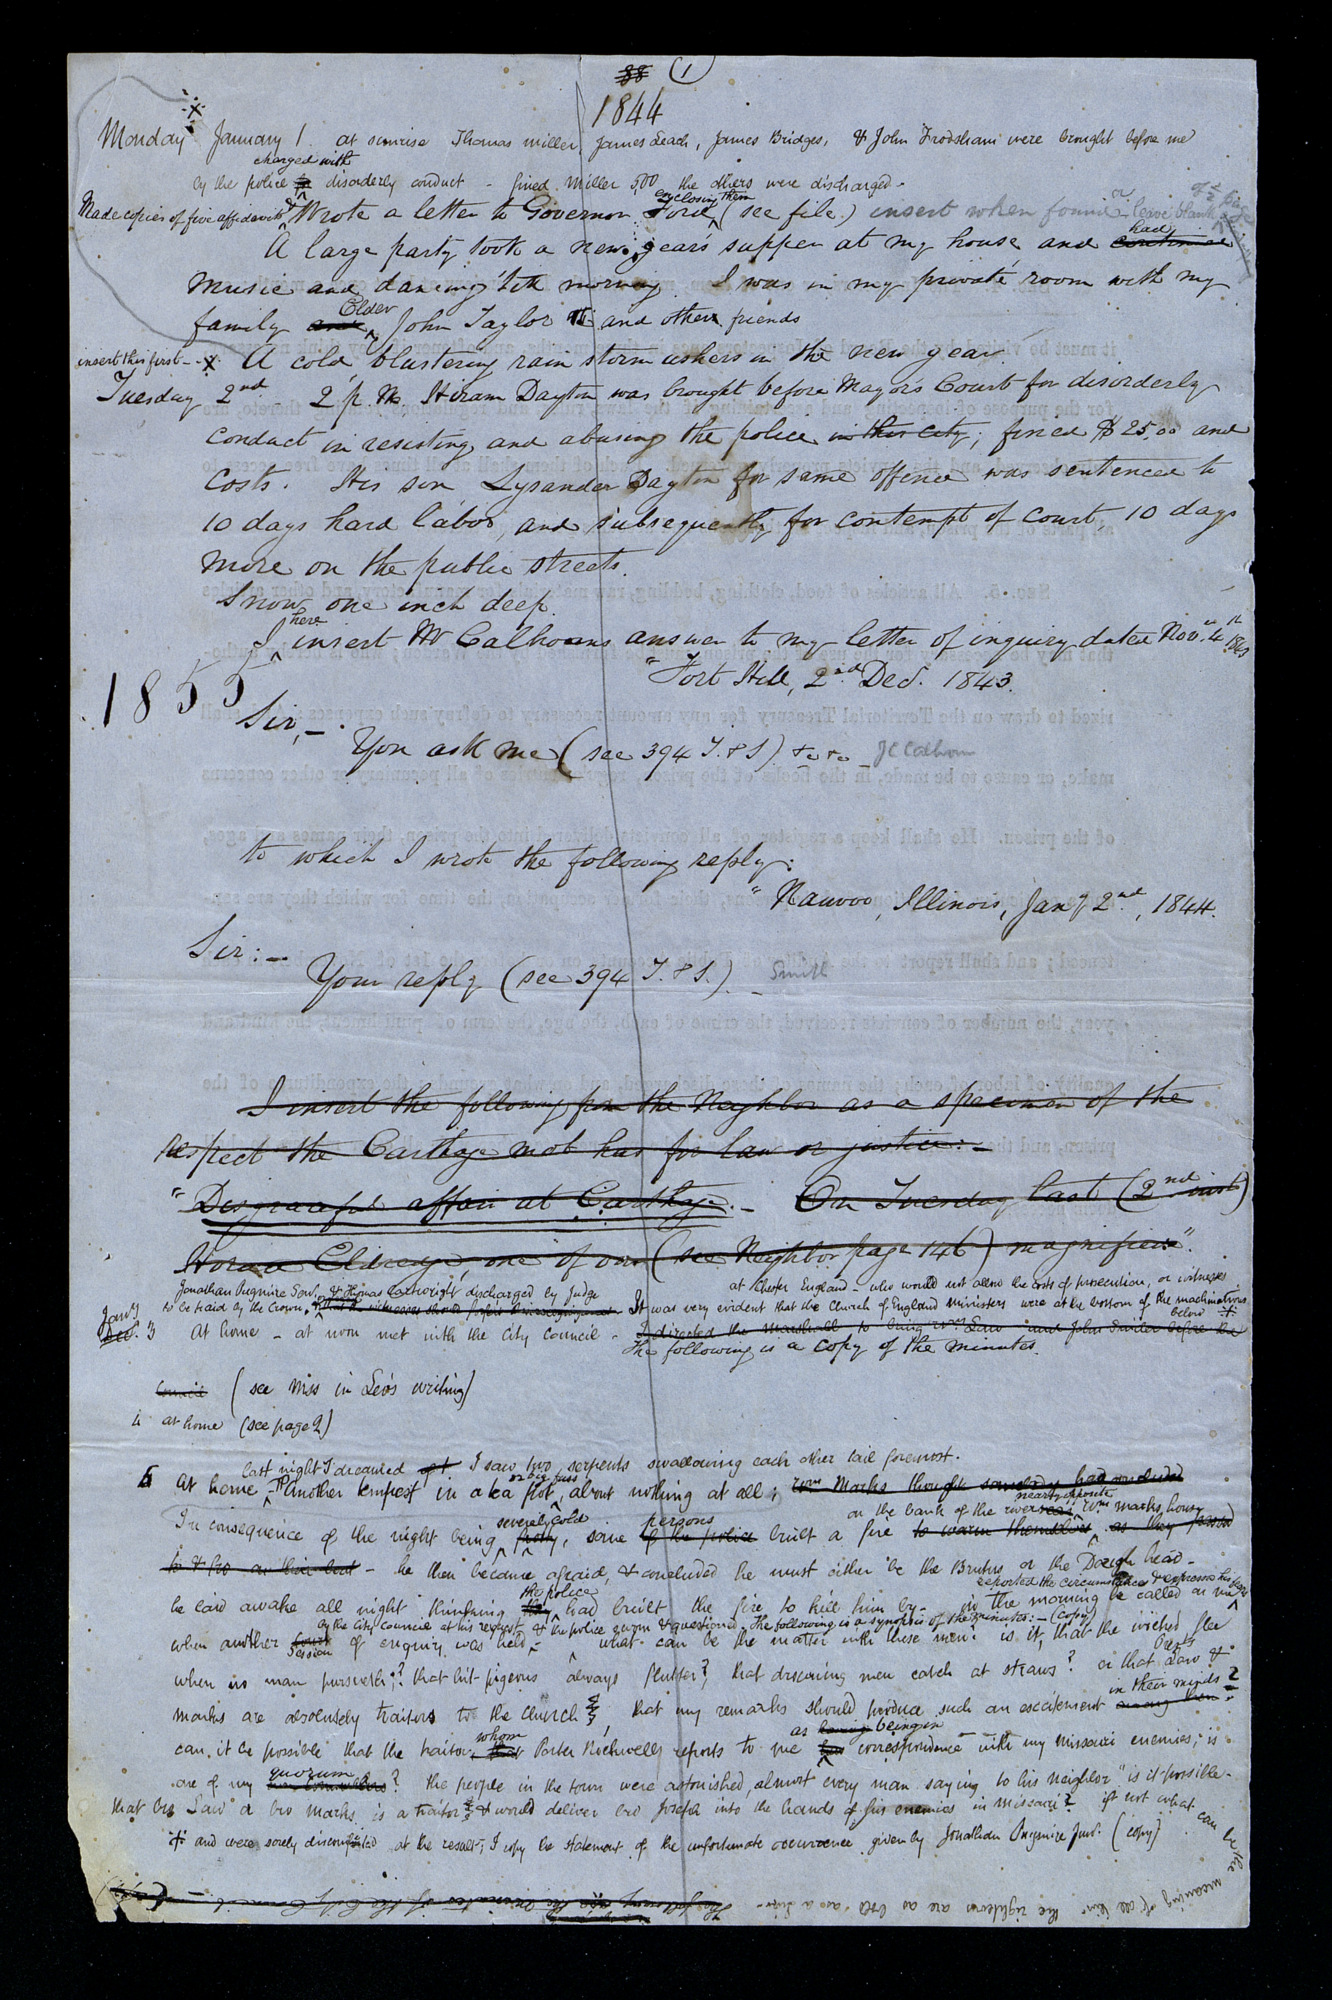 88 (1)
1844
Monday January 1. at sunrise Thomas Miller James Leach, James Bridges, & John Frodsham were brought before me
charged with
by the police for disorderly conduct - fined Miller 5,00 the others were discharged.
enclosing them
Made copies of five affidavits & Wrote a letter to Governor Ford, (see file.) insert when found or leave blank
A large party took a new year's supper at my house and had continued
music and dancing till morning. I was in my private room with my
family and Elder John Taylor and other friends
insert this first - X A cold, blustering rain storm ushers in the new year
Tuesday 2nd. 2 p. m. Hiram Dayton was brought before Mayors Court for disorderly
conduct in resisting and abusing the police in this city; fined $25,00 and
costs. His son, Lysander Dayton for same offence was sentenced to
10 days hard labor, and subsequently for contempt of court, 10 days
more on the public streets.
Snow one inch deep.
I here insert Mr Calhouns answer to my letter of inquiry dated Nov. 4th 1843
"Fort Hill, 2nd Dec. 1843.
1855
Sir, -
You ask me (see 394 T. & S) &c &c - J C Calhoun
to which I wrote the following reply:
"Nauvoo, Illinois, Jany 2nd, 1844.
Sir: -
Your reply (see 394 T. & S.) - Smith
I insert the following from the Neighbor as a specimen of the
respect the Carthage mob has for law or justice: -
"Disgraceful affair at Carthage. - On Tuesday last (2nd inst)
Horace Eldredge, one of our (see Neighbor page 146) magnified".
Jonathan Pugmire Senr, & Thomas Cartwright discharged by Judge at Chester England - who would not allow the costs of prosecution, or witnesses
to be paid by the crown, It was very evident that the Church of England ministers were at the bottom of the machinations
below +
Jany Dec. 3 At home - at noon met with the City Council - I directed the Marshall to bring Wm Law and John Snider before the
The following is a copy of the minutes.
Council (see Mss in Leo's writing)
4 at home (see page 2)
last night I dreamed I saw two serpents swallowing each other tail foremost.
5 At home - Another tempest in a tea pot, or big fuss about nothing at all; Wm Marks thought somebody had concluded
on the bank of the river nearly opposite Wm Marks, house
In consequence of the night being severely cold, some persons of the police built a fire to warm themselves as they passed
to & fro on their beat - he then became afraid, & concluded he must either be the Brutus or the Dough head -
reported the circumstance & expressed his fears
he laid awake all night thinking the police had built the fire to kill him by - in the morning he called on me
by the City council at his request & the police sworn & questioned. The following is a synopsis of the minutes: - (copy)
when another Court session of enquiry was held; - what can be the matter with these men? is it, that the wicked flee
when no man pursueth,? that hit pigeons always flutter?, that drowning men catch at straws? or that Presrs Law &
Marks are absolutely traitors to the church, that my remarks should produce such an excitement in their minds among them?
can it be possible that the traitor, whom that Porter Rockwell reports to me as being in correspondence with my Missouri enemies, is
one of my quorum? the people in the town were astonished, almost every man saying to his neighbor "is it possible -
that bro Law or bro Marks is a traitor & would deliver bro Joseph into the hands of his enemies in Missouri? if not what can be the meaning of all this" the righteous are as bold as a lion -
+ and were sorely discomfited at the result; I copy the statement of the unfortunate occurrence given by Jonathan Pugmire Junr. (copy)
The following are the minutes of the City Council - (copy)